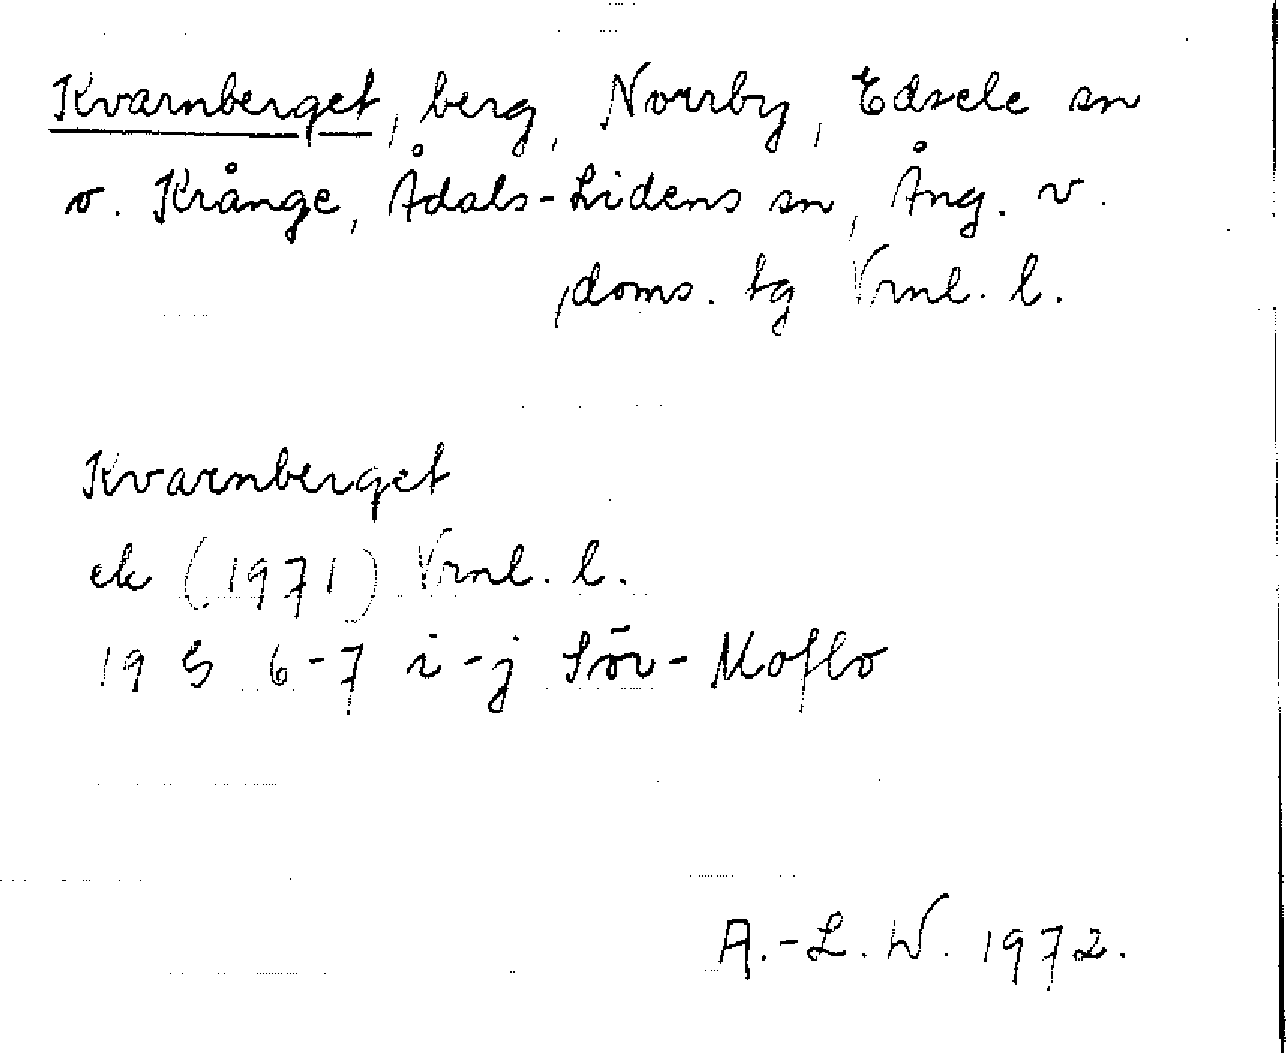 Kvarnberget, berg, Norrby, Edsele sn
o. Krånge, Ådals-Lidens sn, Ång. v.
doms. tg Vrnl. l.
Kvarnberget
ek (1971) Vrnl. l.
19 G 6-7 i-j Sör-Moflo
A.-L. W. 1972.